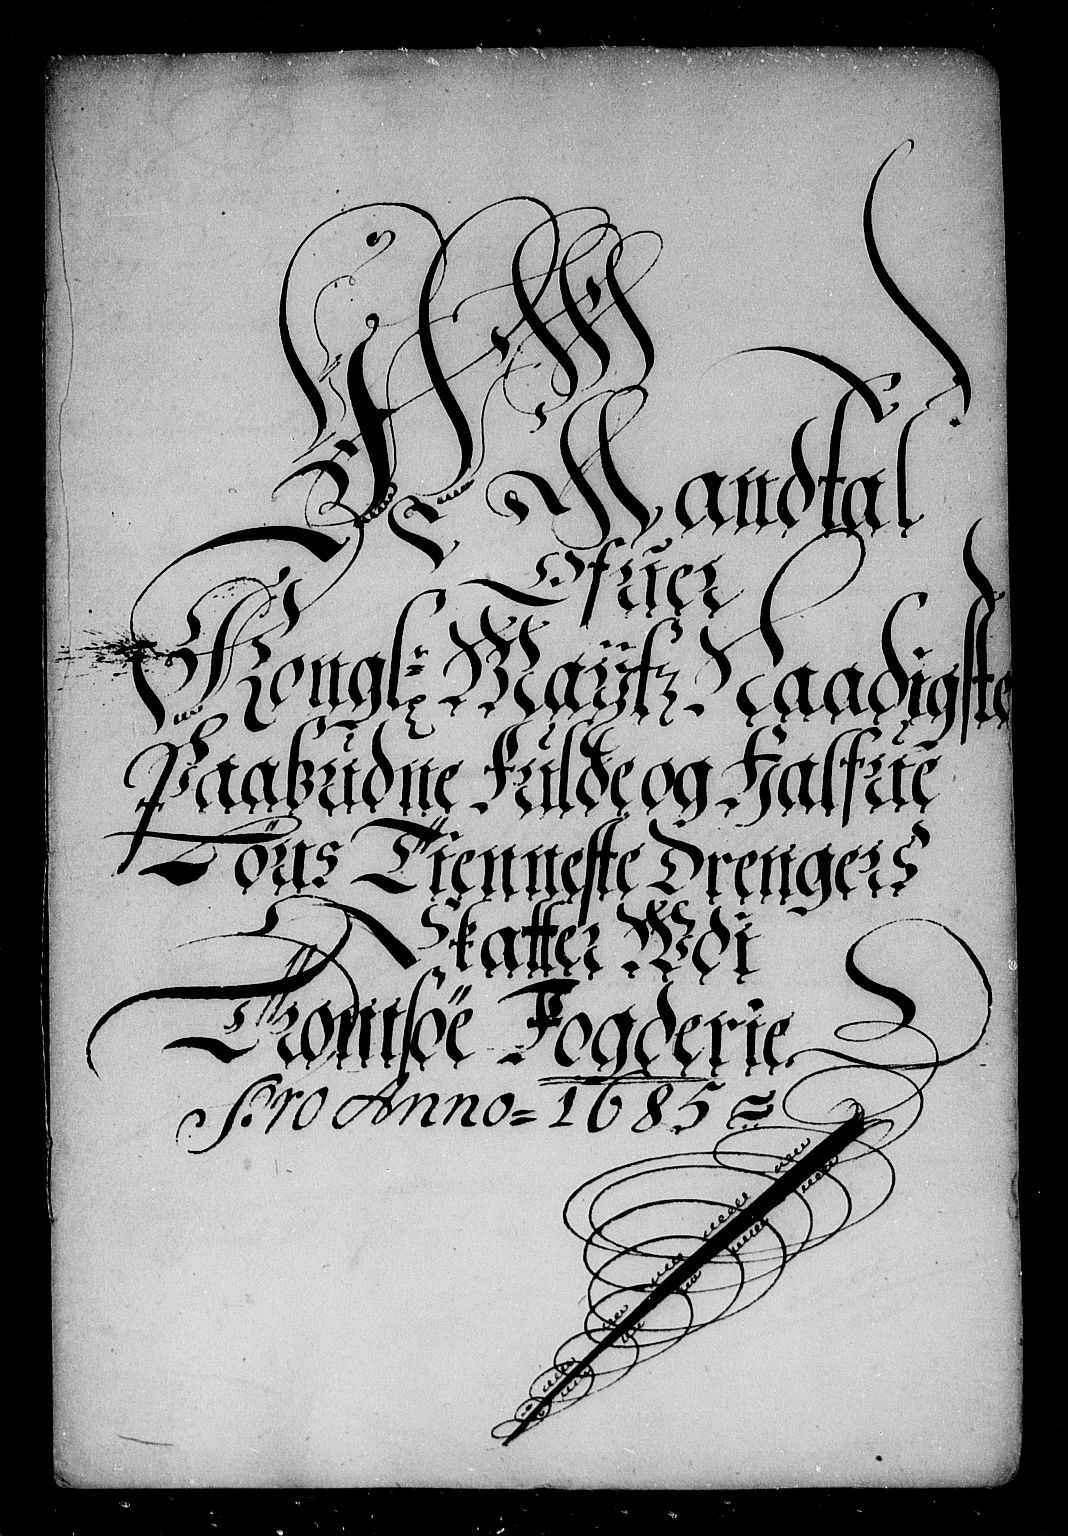 Mandtal
Ofuer
Kongl: Maytz Naadigste
Paabudne Fulde og Halfue
Løns Tienneste Drengers
Skatter Udi
Tromsøe Fogderie
Pro Anno= 1685